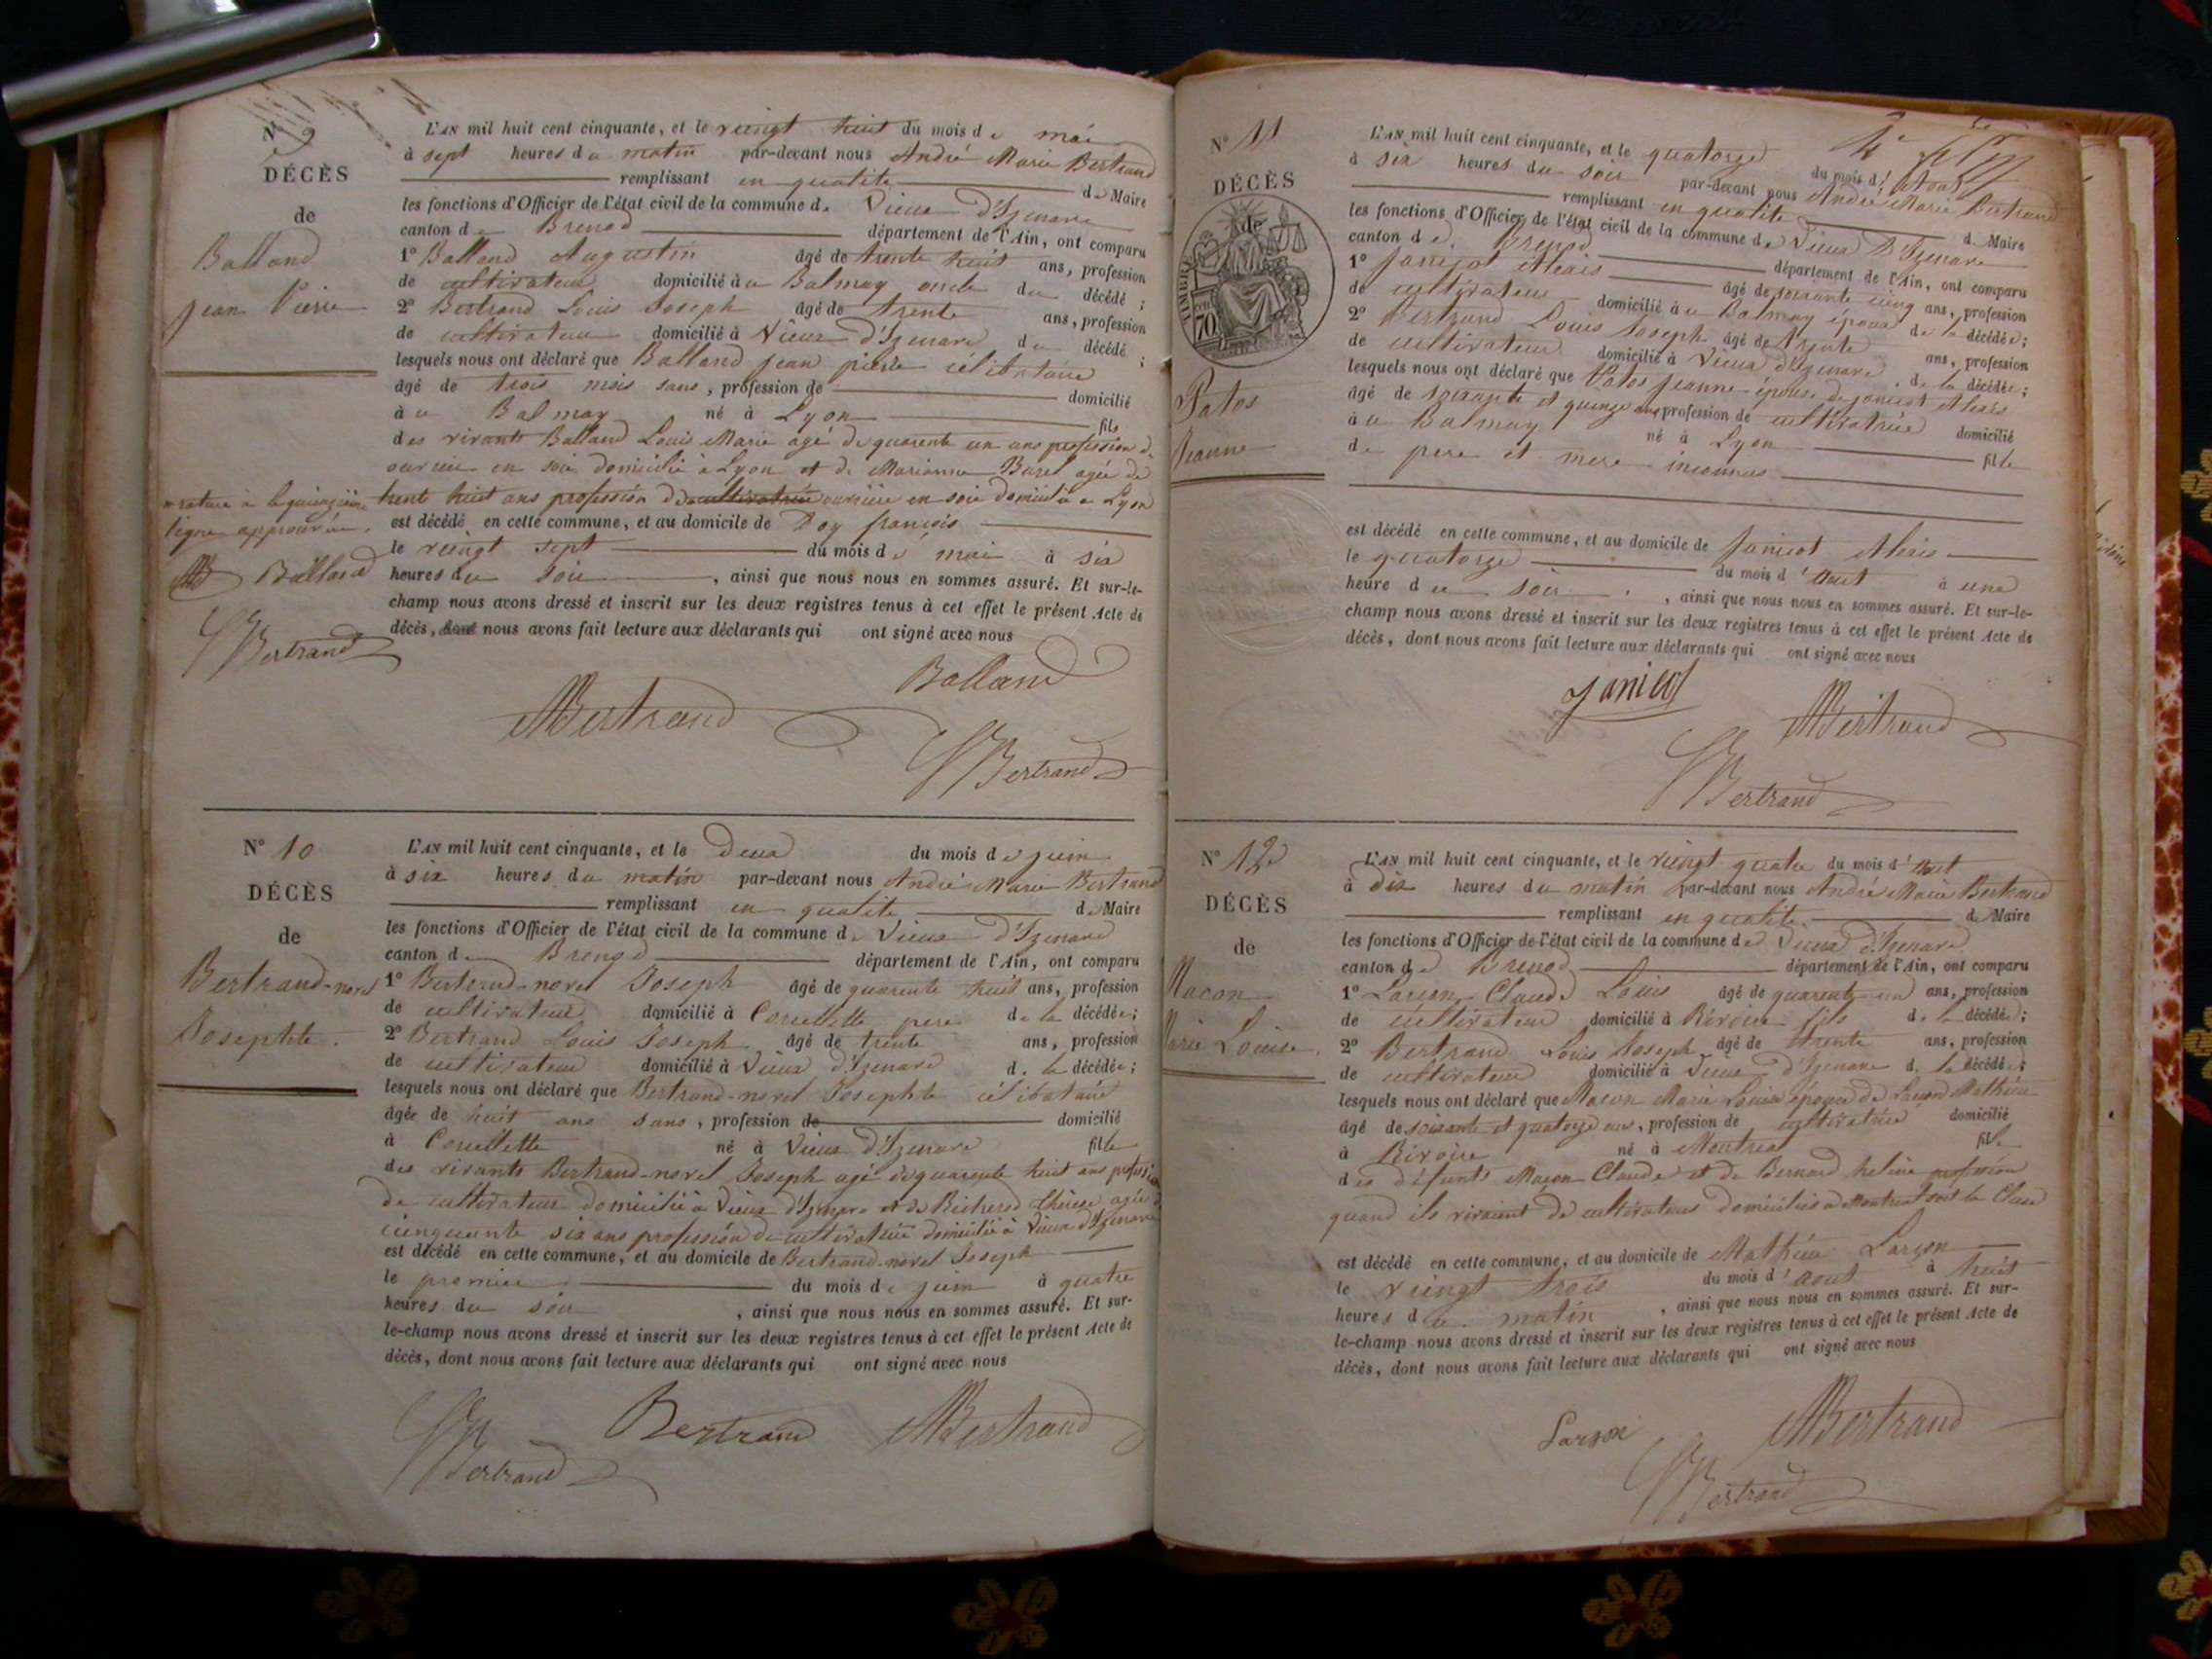 N° 9
DÉCÈS
de
Balland
Jean Pierre
L'AN mil huit cent cinquante, et le vingt huit du mois de mai
à sept heures du matin par-devant nous André Marie Bertrand
remplissant en qualité de Maire
les fonctions d'Officier de l'état civil de la commune de Vieux d'Izenave
canton de Brenod département de l'Ain, ont comparu
1° Balland Augustin âgé de trente huit ans, profession
de cultivateur domicilié à u Balmay oncle du décédé ;
2° Bertrand Louis Joseph âgé de trente ans, profession
de cultivateur domicilié à Vieux d'Izenave du décédé ;
lesquels nous ont déclaré que Balland jean pierre célibataire
âgé de trois mois sans, profession de domicilié
à u Balmay né à Lyon fils
des vivants Balland Louis Marie agé de quarente un ans profession d
ouvrier en soie domicilié à Lyon et de Marianne Buzel agée de
trente huit ans profession de cultivatrice ouvrière en soie domiciliée a Lyon
rature à la quinzième
ligne approuvée.
Balland
Bertrand
est décédé en cette commune, et au domicile de Doy françois
le vingt sept du mois de mai à six
heures du soir , ainsi que nous nous en sommes assuré. Et sur-le-
champ nous avons dressé et inscrit sur les deux registres tenus à cet effet le présent Acte de
décès, dont nous avons fait lecture aux déclarants qui ont signé avec nous
Balland
AMBertrand
Bertrand
N° 10
DÉCÈS
de
Bertrand-novel
Josephte.
L'AN mil huit cent cinquante, et le deux du mois de juin
à six heures du matin par-devant nous André Marie Bertrand
remplissant en qualité de Maire
les fonctions d'Officier de l'état civil de la commune de Vieux d'Izenave
canton de Brenod département de l'Ain, ont comparu
1° Bertrand-novel Joseph âgé de quarente huit ans, profession
de cultivateur domicilié à Corcelette pere de la décédée ;
2° Bertrand Louis Joseph âgé de trente ans, profession
de cultivateur domicilié à Vieux d'Izenave d. la décédée ;
lesquels nous ont déclaré que Bertrand-novel Josephte célibataire
âgée de huit ans sans, profession de domicilié
à Corcelette né à Vieux d'Izenave fille
des vivants Bertrand-novel Joseph agé de quarente huit ans profession
de cultivateur domicilié à Vieux d'Izenave et de Thérèse agée d
cinquante six ans profession de cultivatrice domiciliée à Vieux d'Izenave
est décédé en cette commune, et au domicile de Bertrand-novel Joseph
le premier du mois de juin à quatre
heures du soir , ainsi que nous nous en sommes assuré. Et sur-
le-champ nous avons dressé et inscrit sur les deux registres tenus à cet effet le présent Acte de
décès, dont nous avons fait lecture aux déclarants qui ont signé avec nous
Bertrand
AMBertrand
Bertrand
N° 11
DÉCÈS
de
TIMBRE
70
Patos
Jeanne
L'AN mil huit cent cinquante, et le quatorze du mois d'Aout
à six heures du soir par-devant nous André Marie Bertrand
remplissant en qualité de Maire
les fonctions d'Officier de l'état civil de la commune de Vieux D'Izenave
canton de Brenod département de l'Ain, ont comparu
1° Janicot Alexis âgé de soixante cinq ans, profession
de cultivateur domicilié à u Balmay époux de la décédée ;
2° Bertrand Louis Joseph âgé de trente ans, profession
de cultivateur domicilié à Vieux d'Izenave de la décédée ;
lesquels nous ont déclaré que Patos jeanne épouse de janicot Alexis
âgé de soixante et quinze ans, profession de cultivatrice domicilié
à u Balmay né à Lyon fille
de pere et mere inconnus
est décédé en cette commune, et au domicile de Janicot Alexis
le quatorze du mois d'Aout à une
heure du soir , ainsi que nous nous en sommes assuré. Et sur-le-
champ nous avons dressé et inscrit sur les deux registres tenus à cet effet le présent Acte de
décès, dont nous avons fait lecture aux déclarants qui ont signé avec nous
Janicot
AMBertrand
Bertrand
N° 12
DÉCÈS
de
Macon
Marie Louise.
L'AN mil huit cent cinquante, et le vingt quatre du mois d'Aout
à dix heures du matin par-devant nous André Marie Bertrand
remplissant en qualité de Maire
les fonctions d'Officier de l'état civil de la commune de Vieux d'Izenave
canton de Brenod département de l'Ain, ont comparu
1° Larçon Claude Louis âgé de quarente un ans, profession
de cultivateur domicilié à Rivoire fils d. la décédée ;
2° Bertrand Louis Joseph âgé de trente ans, profession
de cultivateur domicilié à Vieux d'Izenave d. la décédée ;
lesquels nous ont déclaré que Macon Marie Louise épouse de Larçon Mathieu
âgé de soixante et quatorze ans, profession de cultivatrice domicilié
à Rivoire né à Montreal fille
des défunts Maçon Claude et de Bernard heline profession
quand ils vivaient de cultivateurs domiciliés a Montreal
est décédé en cette commune, et au domicile de Mathieu Larçon
le vingt trois du mois d'Aout à huit
heures du matin , ainsi que nous nous en sommes assuré. Et sur-
le-champ nous avons dressé et inscrit sur les deux registres tenus à cet effet le présent Acte de
décès, dont nous avons fait lecture aux déclarants qui ont signé avec nous
AMBertrand
Bertrand